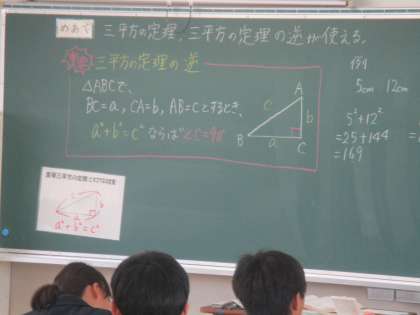 めあて 三平方の定理、三平方の定理の逆が使える。
三平方の定理の逆
△ABCで、
BC=a, CA=b, AB=cとするとき、
a²+b²=c² ならば ∠C=90°
A
c
b
B
a
C
例
5cm 12cm
5²+12²
=25+144
=169
a²+b²=c²